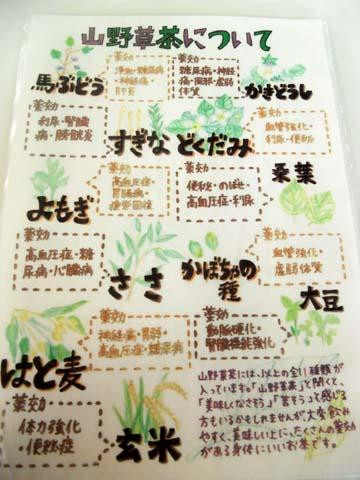 山野草茶について
馬ぶどう
薬効
浄血・糖尿病・神経病・
肝炎
薬効
糖尿病・神経
病・関節・虚弱
体質
かきどうし
薬効
利尿・腎臓
病・膀胱炎
すぎな
どくだみ
薬効
血管強化・
利尿・便秘
よもぎ
薬効
高血圧症・
胃腸病・
疲労回復
薬効
便秘・のぼせ・
高血圧症・利尿
桑葉
薬効
高血圧症・糖
尿病・心臓病
ささ
かぼちゃの
種
薬効
血管強化・
虚弱体質
はと麦
薬効
神経病・胃弱・
高血圧症・糖尿病
薬効
動脈硬化・
腎臓機能強化
大豆
薬効
体力強化
・便秘症
玄米
山野草茶には、以上の全11種類が
入っています。「山野草茶」と聞くと、
「美味しくなさそう」「苦そう」って感じる
方もいるかもしれませんが大変飲み
やすく、美味しい上に、たくさんの薬効
がある身体にいいお茶です。